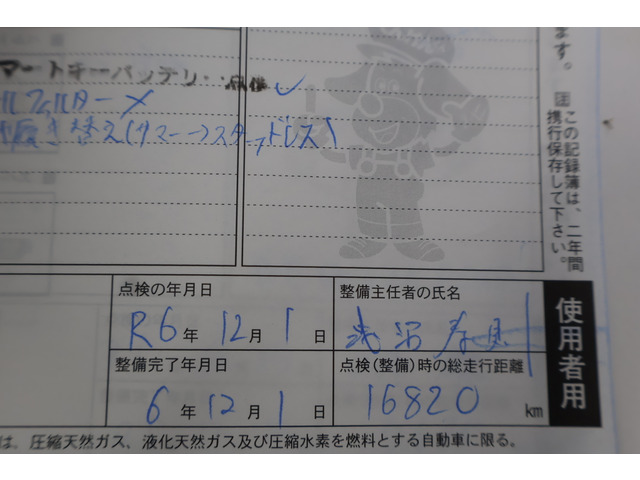 マートキーバッテリー・点検 ✓
ルフィルター ✗
履き替え(サマー→スタッドレス)
ます。
この記録簿は、二年間
携行保存して下さい。
点検の年月日
R6年 12月 1日
整備主任者の氏名
整備完了年月日
6年 12月 1日
点検(整備)時の総走行距離
16820 km
使用者用
は、圧縮天然ガス、液化天然ガス及び圧縮水素を燃料とする自動車に限る。